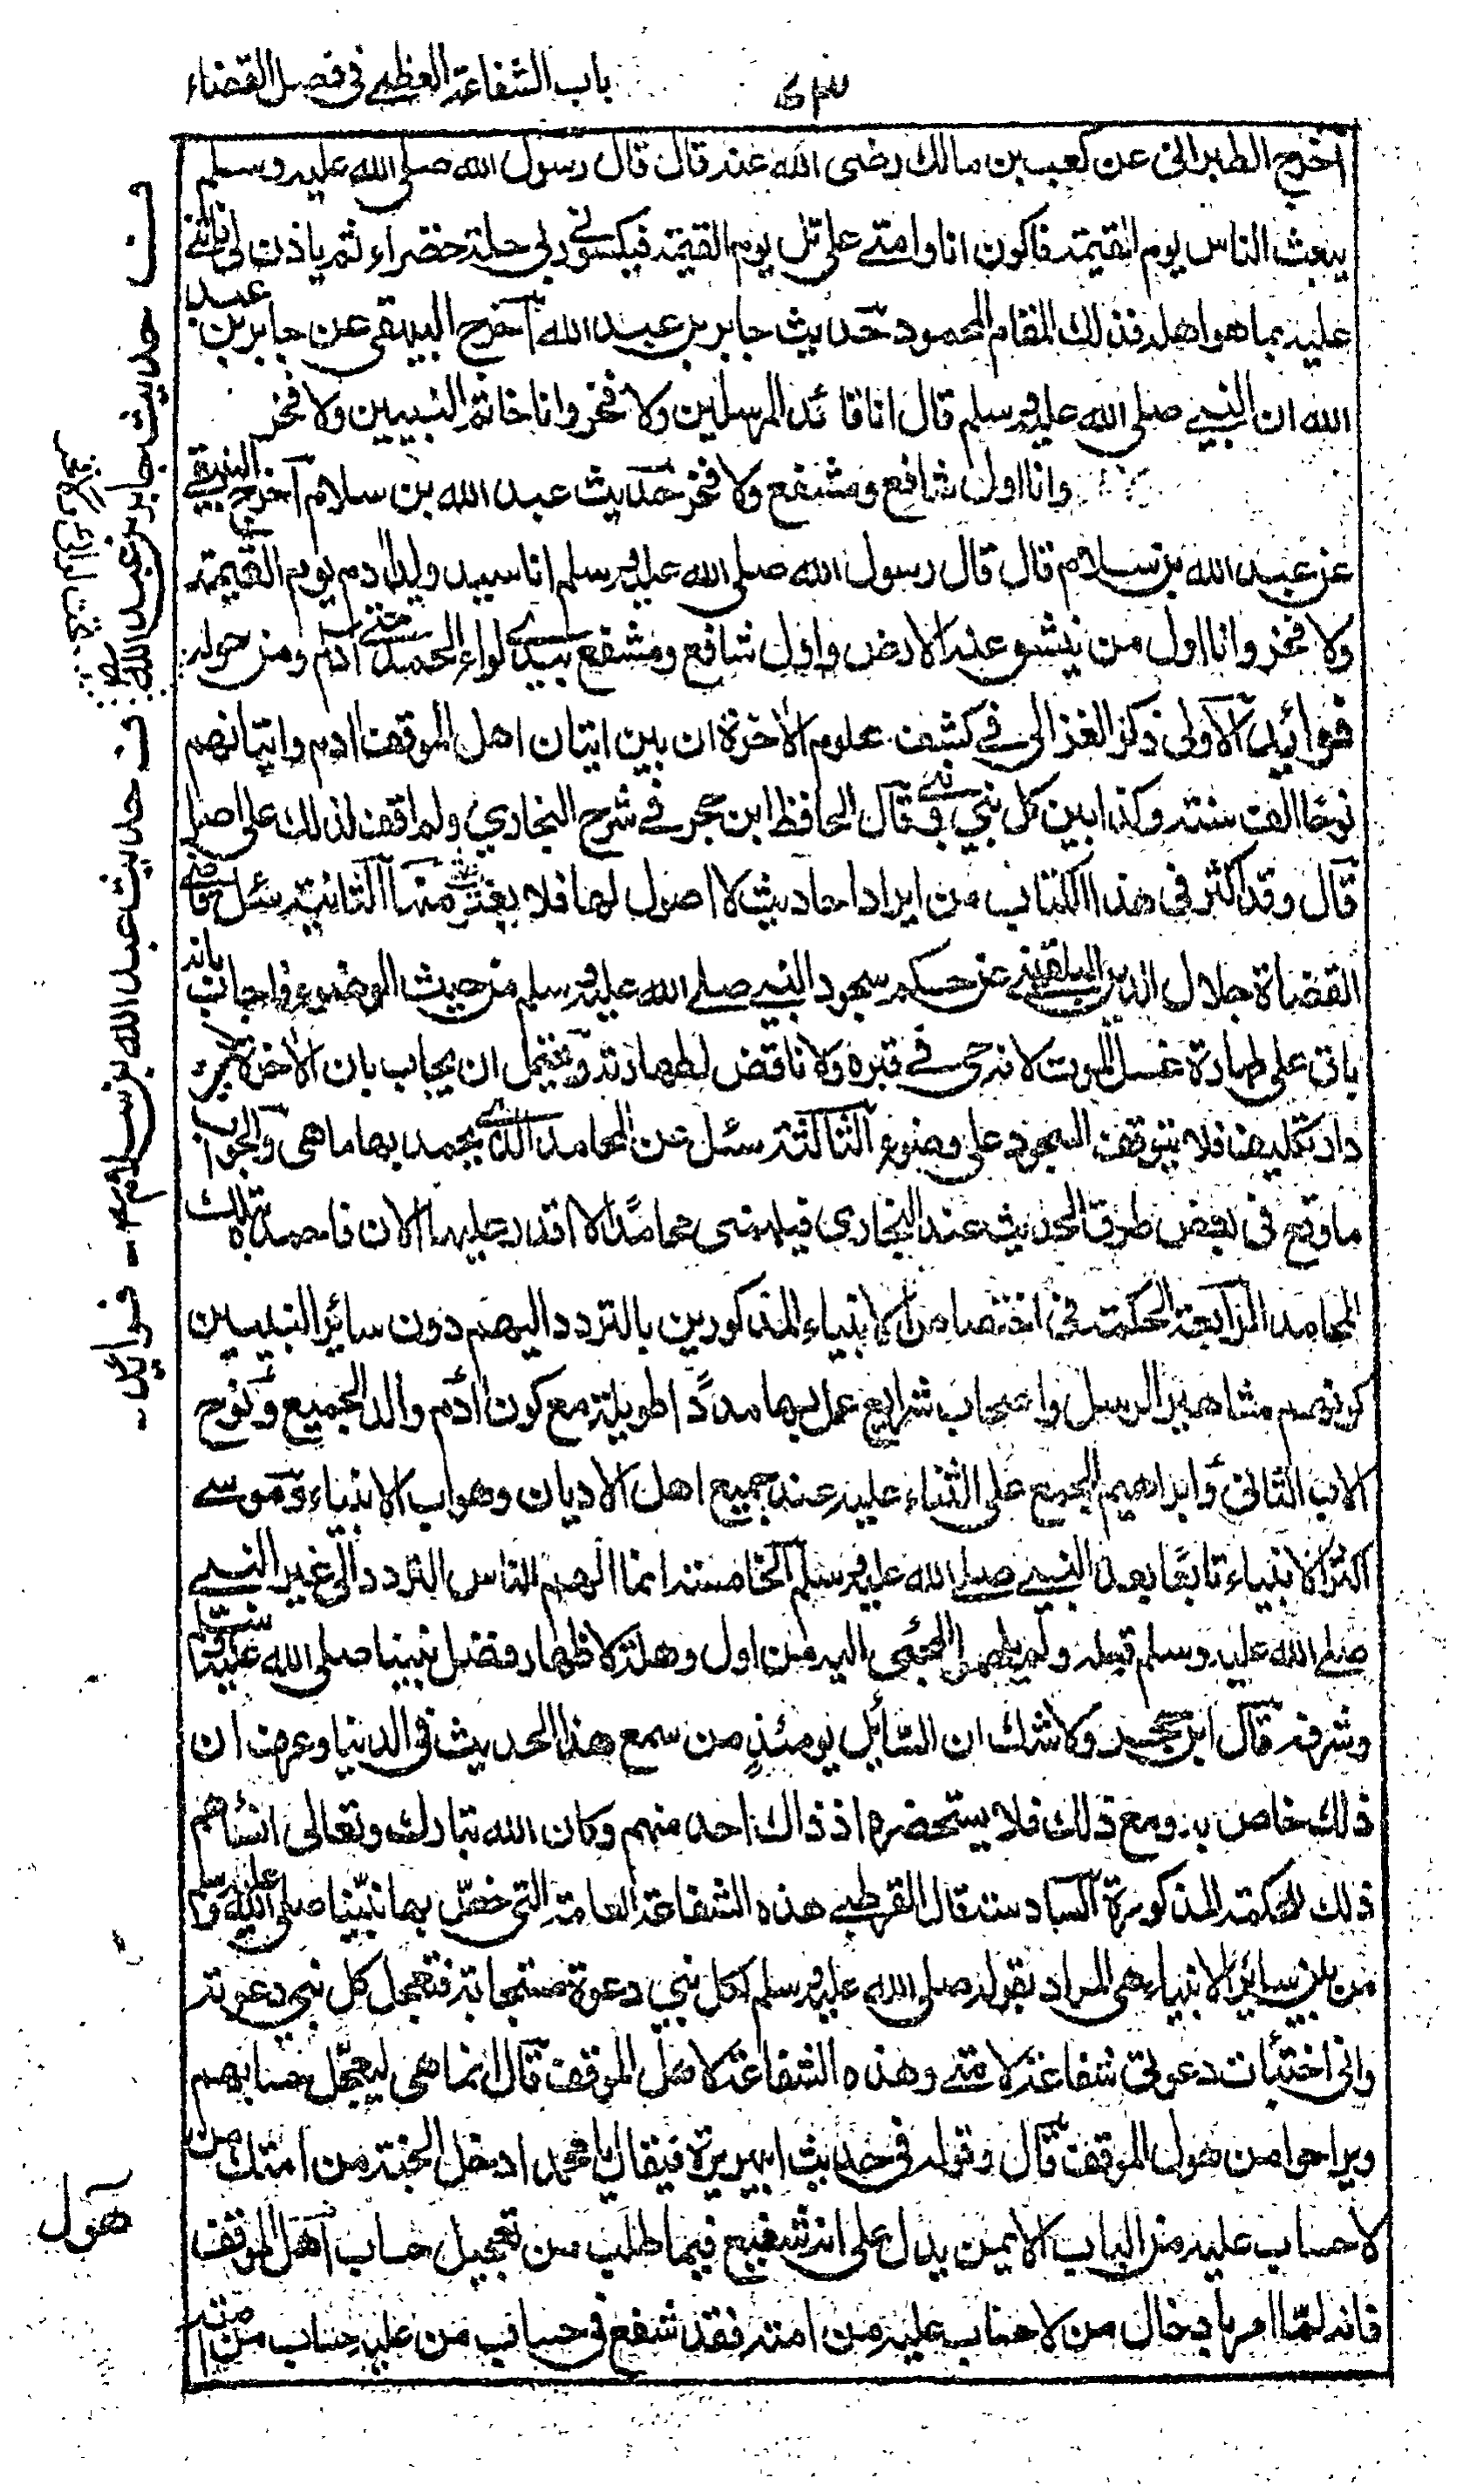 باب الشفاعة العظمى فى فصل القضاء
اخرج الطبرانى عن كعب بن مالك رضى الله عنه قال قال رسول الله صلى الله عليه وسلم
يبعث الناس يوم القيمة فاكون انا وامتى على تل يوم القيمة فيكسونى ربى حلة خضراء ثم ياذن لى فاثنى
عليه بما هو اهله فذلك المقام المحمود حديث جابر بن عبد الله اخرج البيهقى عن جابر بن عبد
الله ان النبى صلى الله عليه وسلم قال انا قائد المرسلين ولا فخر وانا خاتم النبيين ولا فخر
وانا اول شافع ومشفع ولا فخر حديث عبد الله بن سلام اخرج البيهقى
عن عبد الله بن سلام قال قال رسول الله صلى الله عليه وسلم انا سيد ولد ادم يوم القيمة
ولا فخر وانا اول من ينشق عنه الارض واول شافع ومشفع بيدى لواء الحمد حتى ادم ومن حوله
فوائد الاولى ذكر الغزالى فى كشف علوم الاخرة ان بين اتيان اهل الموقف ادم واتيانهم
نوحا الف سنة وكذا بين كل نبى ونبى قال الحافظ ابن حجر فى شرح البخاري ولم اقف لذلك على اصل
قال وقد اكثر فى هذا الكتاب من ايراد احاديث لا اصول لها فلا يغتر بشئ منها الثانية سئل قاضى
القضاة جلال الدين البلقينى عن حكم سجود النبى صلى الله عليه وسلم من حيث الوضوء فاجاب بانه
باق على طهارة غسل الموت لانه حى فى قبره ولا ناقض لطهارته ويحتمل ان يجاب بان الاخرة ليست
دار تكليف فلا يتوقف السجود على وضوء الثالثة سئل عن المحامد الذى يحمد بها ما هى والجواب
ما وقع فى بعض طرق الحديث عند البخاري فيلهمنى محامدًا لا اقدر عليها الان فاحمده بتلك
المحامد الرابعة الحكمة فى اختصاص الانبياء المذكورين بالتردد اليهم دون سائر النبيين
كونهم مشاهير الرسل واصحاب شرايع عمل بها مددًا طويلة مع كون ادم والد الجميع ونوح
الاب الثانى وابراهيم المجمع على الثناء عليه عند جميع اهل الاديان وهو اب الانبياء وموسى
اكثر الانبياء تابعًا بعد النبى صلى الله عليه وسلم الخامسة انما الهم الناس التردد الى غير النبى
صلى الله عليه وسلم قبله ولم يلهموا المجئى اليه من اول وهلة لاظهار فضل نبينا صلى الله عليه وسلم
وشرفه قال ابن حجر ولا شك ان السائل يومئذٍ من سمع هذا الحديث فى الدنيا وعرف ان
ذلك خاص به ومع ذلك فلا يستحضره اذ ذاك احد منهم وكان الله تبارك وتعالى انساهم
ذلك للحكمة المذكورة السادسة قال القرطبى هذه الشفاعة العامة التى خص بها نبينا صلى الله عليه وسلم
من بين سائر الانبياء هى المراد بقوله صلى الله عليه وسلم لكل نبى دعوة مستجابة فتعجل كل نبى دعوته
وانى اختبأت دعوتى شفاعة لامتى وهذه الشفاعة لاهل الموقف قال انما هى ليعجل حسابهم
ويراحوا من هول الموقف قال وقوله فى حديث ابى هريرة فيقال يا محمد ادخل الجنة من امتك من
لا حساب عليه من الباب الايمن يدل على انه شفيع فيما طلب من تعجيل حساب اهل الموقف
فانه لما امر بادخال من لا حساب عليه من امته فقد شفع فى حساب من عليه حساب من امته
هول
ف حديث جابر بن عبد الله
ف حديث عبد الله بن سلام - فوائد